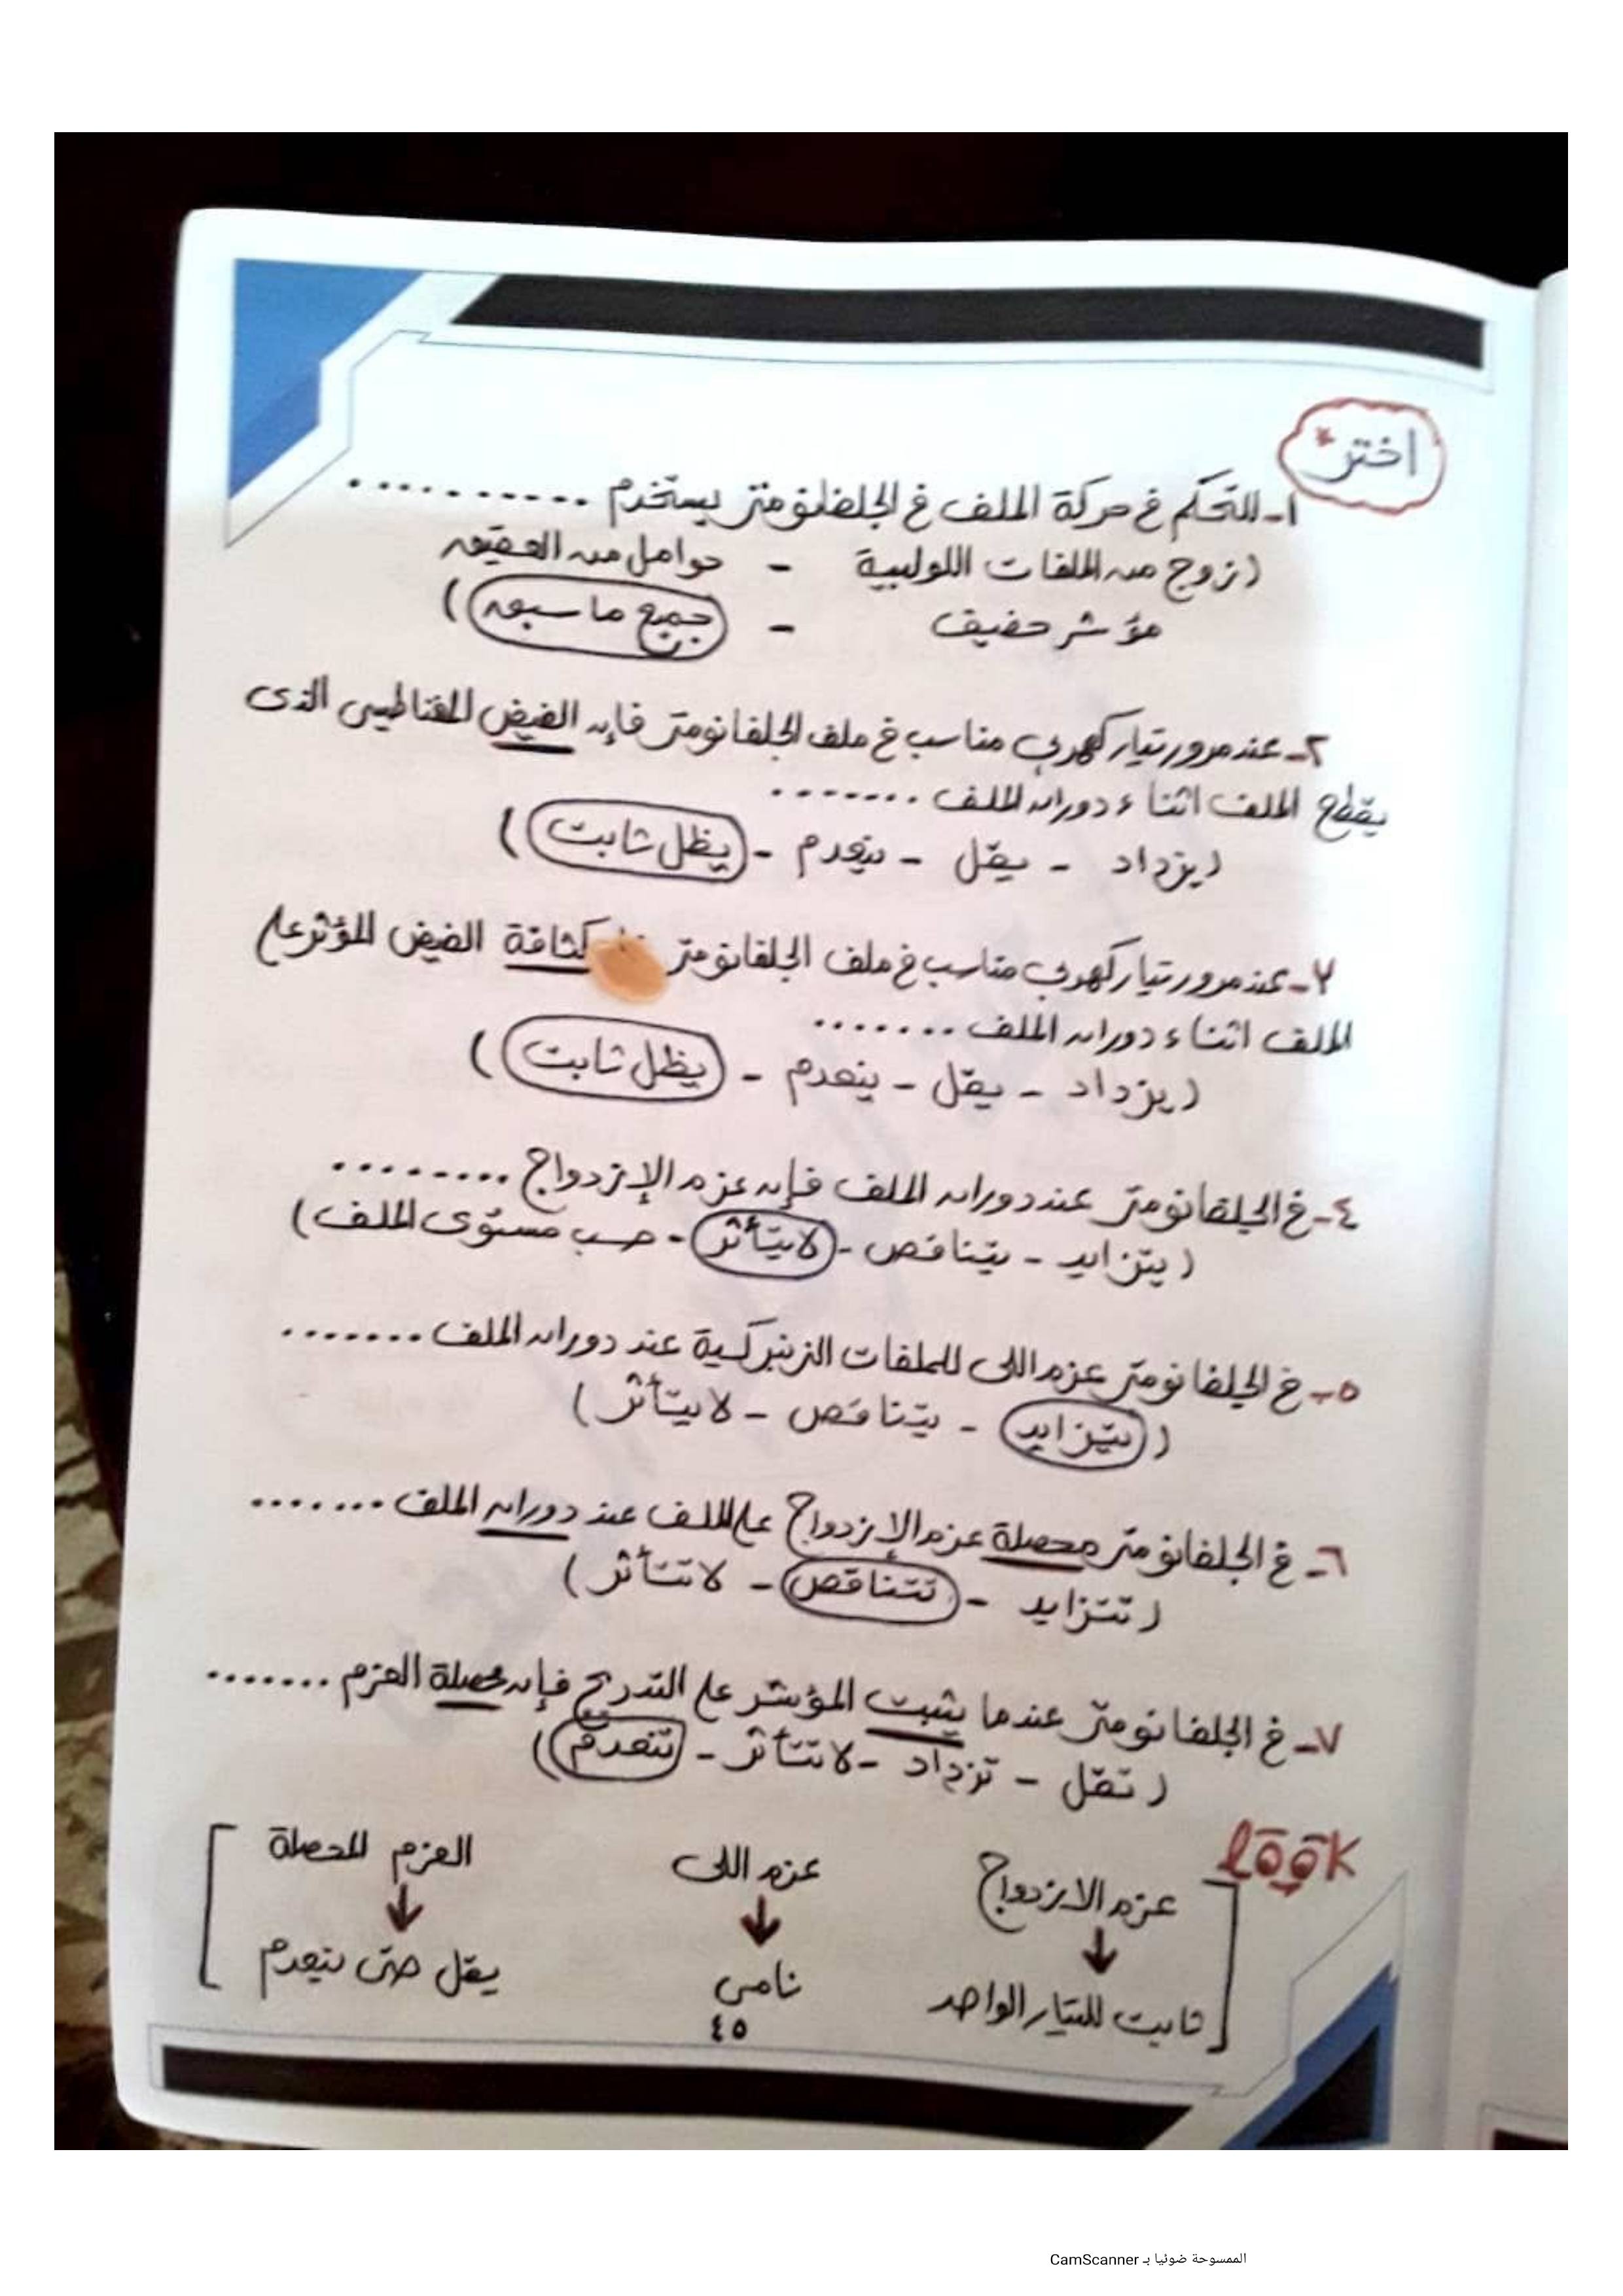 اختر *
١- للتحكم فى حركة الملف فى الجلفانومتر يستخدم ..........
(زوج من الملفات اللولبية - حوامل من العقيق
مؤشر خفيف - جميع ما سبق)
٢- عند مرور تيار كهربي مناسب فى ملف الجلفانومتر فإن الفيض المغناطيسى الذى
يقطع الملف اثناء دوران الملف .......
(يزداد - يقل - ينعدم - يظل ثابت)
٣- عند مرور تيار كهربي مناسب فى ملف الجلفانومتر كثافة الفيض المؤثر على
الملف اثناء دوران الملف .......
(يزداد - يقل - ينعدم - يظل ثابت)
٤- فى الجلفانومتر عند دوران الملف فإن عزم الإزدواج ........
(يتزايد - يتناقص - لايتأثر - حسب مستوى الملف)
٥- فى الجلفانومتر عزم اللى للملفات الزنبركية عند دوران الملف .......
(يتزايد - يتناقص - لايتأثر)
٦- فى الجلفانومتر محصلة عزم الإزدواج على الملف عند دوران الملف .......
(تتزايد - تتناقص - لاتتأثر)
٧- فى الجلفانومتر عندما يثبت المؤشر على التدريج فإن محصلة العزم .......
(تقل - تزداد - لاتتأثر - تنعدم)
look
عزم الازدواج عزم اللى العزم المحصلة
ثابت للتيار الواحد نامى يقل حتى ينعدم
٤٥
الممسوحة ضوئيا بـ CamScanner